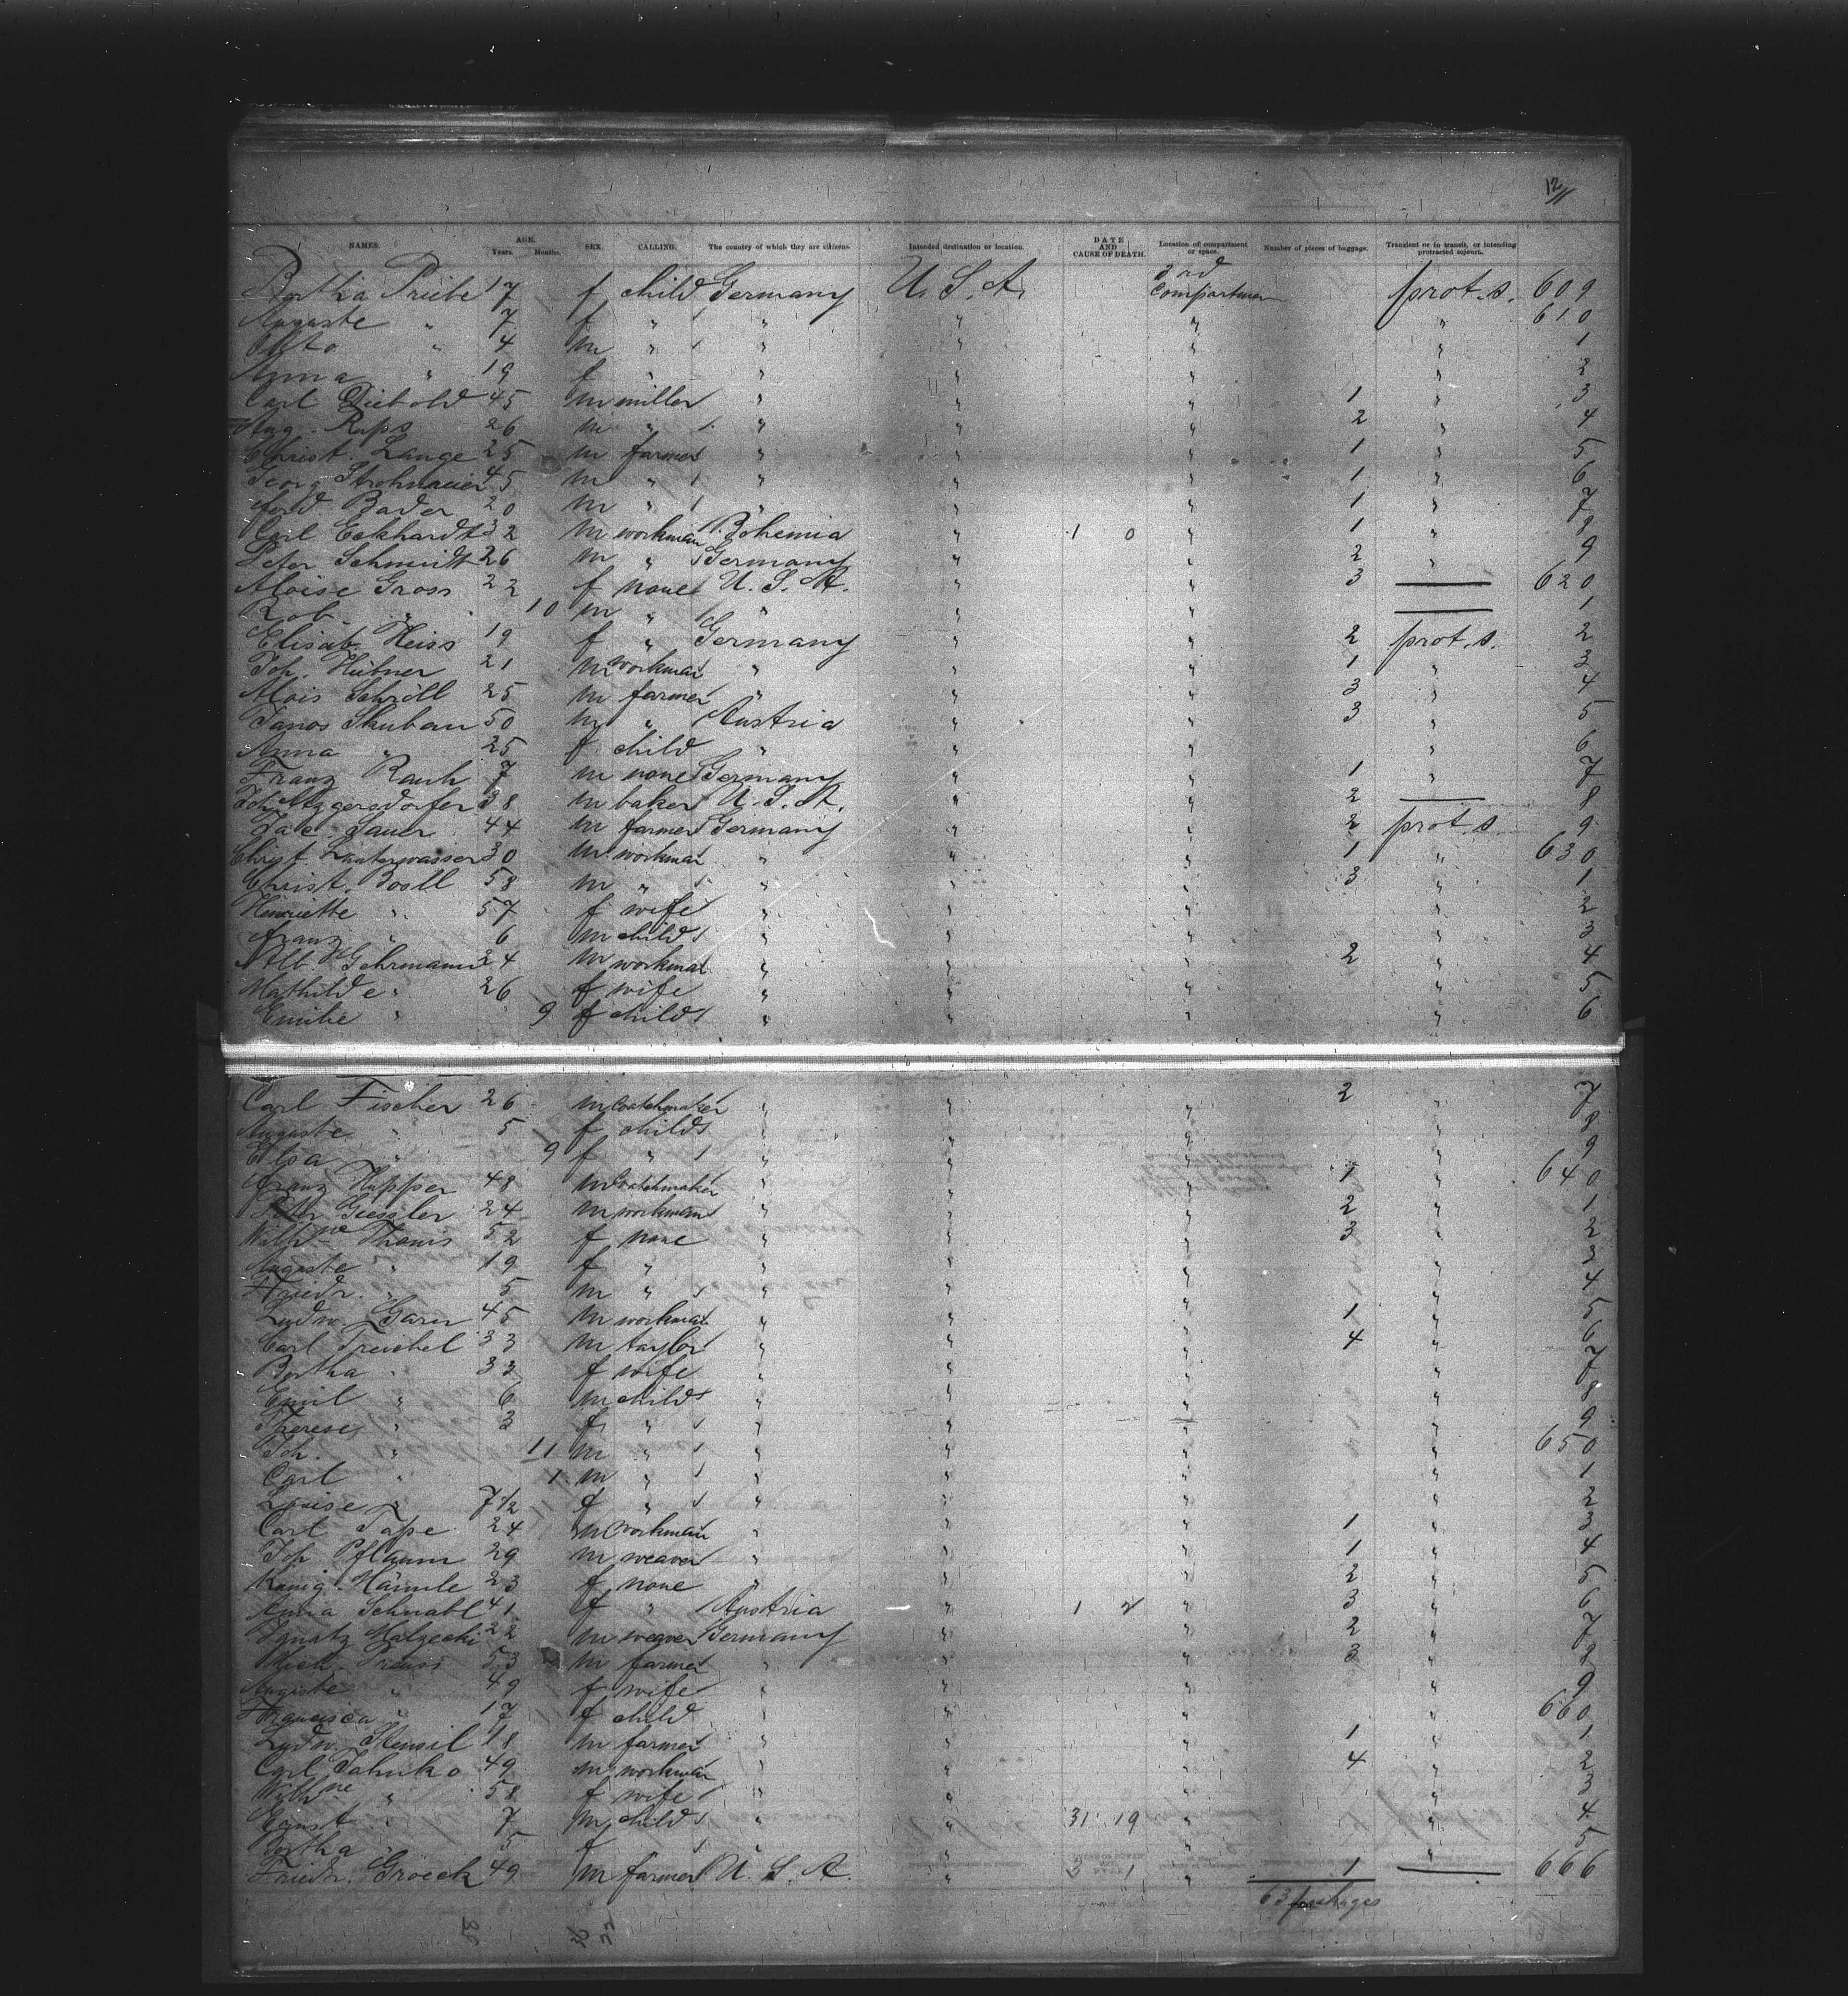 12/11
NAMES. AGE. Years. Months. SEX. CALLING. The country of which they are citizens. Intended destination or location. DATE AND CAUSE OF DEATH. Location of compartment or space. Number of pieces of baggage. Transient or in transit, or intending protracted sojourn.
Bertha Priebe 17 f child Germany U. S. A. 3rd Compartmen prot. s. 609
Auguste " 7 f " " " " " 610
Otto " 4 m " " " " " 1
Anna " 19 f " " " " " 2
Carl Diebold 45 m miller " " " 1 " 3
Aug. Raps 26 m " " " " 2 " 4
Christ. Lange 25 m farmer " " " 1 " 5
Georg Strohmaier 45 m " " " " 1 " 6
Ferd. Bader 20 m " " " " 1 " 7
Carl Eckhardt 32 m workman Bohemia " 1 0 " 1 " 8
Peter Schmidt 26 m " Germany " " 2 " 9
Aloise Gross 22 f none U. S. A. " " 3 — 620
Rob. " 10 m " " " " — 1
Elisab. Heiss 19 f " Germany " " 2 prot. s. 2
Joh. Hübner 21 m workman " " " 1 " 3
Alois Schröll 25 m farmer " " " 3 " 4
Janos Skuban 50 m " Austria " " 3 " 5
Anna " 25 f child " " " " 6
Franz Rauh 7 m none Germany " " 1 " 7
Joh. Atzgersdorfer 38 m baker U. S. A. " " 2 — 8
Jac. Sauer 44 m farmer Germany " " 2 prot. s 9
Christ. Lauterwasser 30 m workman " " " 1 " 630
Christ. Boll 58 m " " " " 3 " 1
Henriette " 57 f wife " " " " 2
Franz " 6 m child " " " " 3
Alb. Gehrmann 24 m workman " " " 2 " 4
Mathilde " 26 f wife " " " " 5
Emilie " 9 f child " " " " 6
Carl Fischer 26 m Coatchmaker " " " 2 " 7
Auguste " 5 f child " " " " 8
Elsa " 9 f " " " " " 9
Franz Hipper 48 m Coatchmaker " " " 1 " 640
Peter Giessler 24 m workman " " " 2 " 1
Wilhne Thanis 52 f none " " " 3 " 2
Auguste " 19 f " " " " " 3
Friedr. " 5 m " " " " " 4
Ludw. Garer 45 m workman " " " 1 " 5
Carl Treichel 33 m taylor " " " 4 " 6
Bertha " 33 f wife " " " " 7
Emil " 6 m child " " " " 8
Therese " 3 f " " " " " 9
Joh. " 11 m " " " " " 650
Carl " 1 m " " " " " 1
Louise " 7 1/2 f " " " " " 2
Carl Tape 24 m workman " " " 1 " 3
Joh Pflaum 29 m weaver " " " 1 " 4
Kunig. Hämle 23 f none " " " 2 " 5
Anna Schnabl 41 f " Austria " 1 2 " 3 " 6
Ignatz Malzecki 22 m weaver Germany " " 2 " 7
Mich. Preuss 53 m farmer " " " 3 " 8
Auguste " 49 f wife " " " " 9
Francisca " 17 f child " " " " 660
Ludw. Stensil 18 m farmer " " " 1 " 1
Carl Jahnke 49 m workman " " " 4 " 2
Wilhne " 58 f wife " " " " 3
Ernst " 7 m child " " 31 19 " " 4
Bertha " 5 f " " " " 5
Friedr. Groeck 49 m farmer U. S. A. " 2 1 " 1 — 666
63 packages